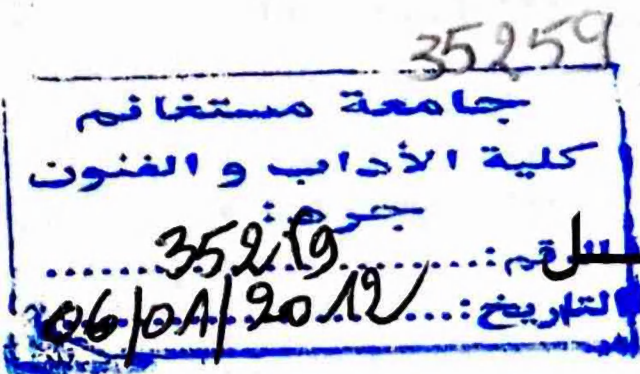 35259
جامعة مستغانم
كلية الآداب و الفنون
جرد:
الرقم: 35259
التاريخ: 06/01/2012